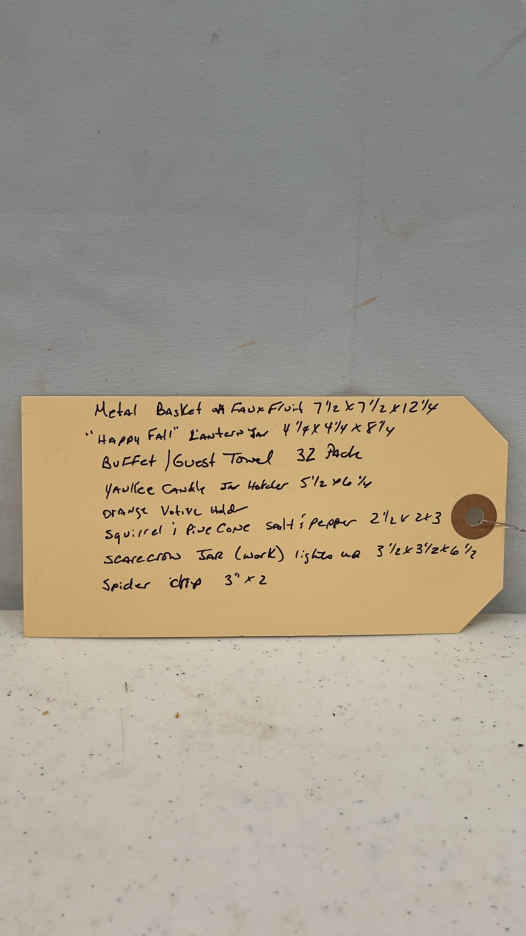 Metal Basket of Faux Fruit 7 1/2 x 7 1/2 x 12 1/4
"Happy Fall" Lantern Jar 4 1/4 x 4 1/4 x 8 1/4
Buffet / Guest Towel 32 Pack
Yankee Candle Jar Holder 5 1/2 x 6 1/4
Orange Votive Hold
Squirrel & Pine Cone Salt & Pepper 2 1/2 x 2 x 3
Scarecrow Jar (work) lights up 3 1/2 x 3 1/2 x 6 1/2
Spider 3" x 2